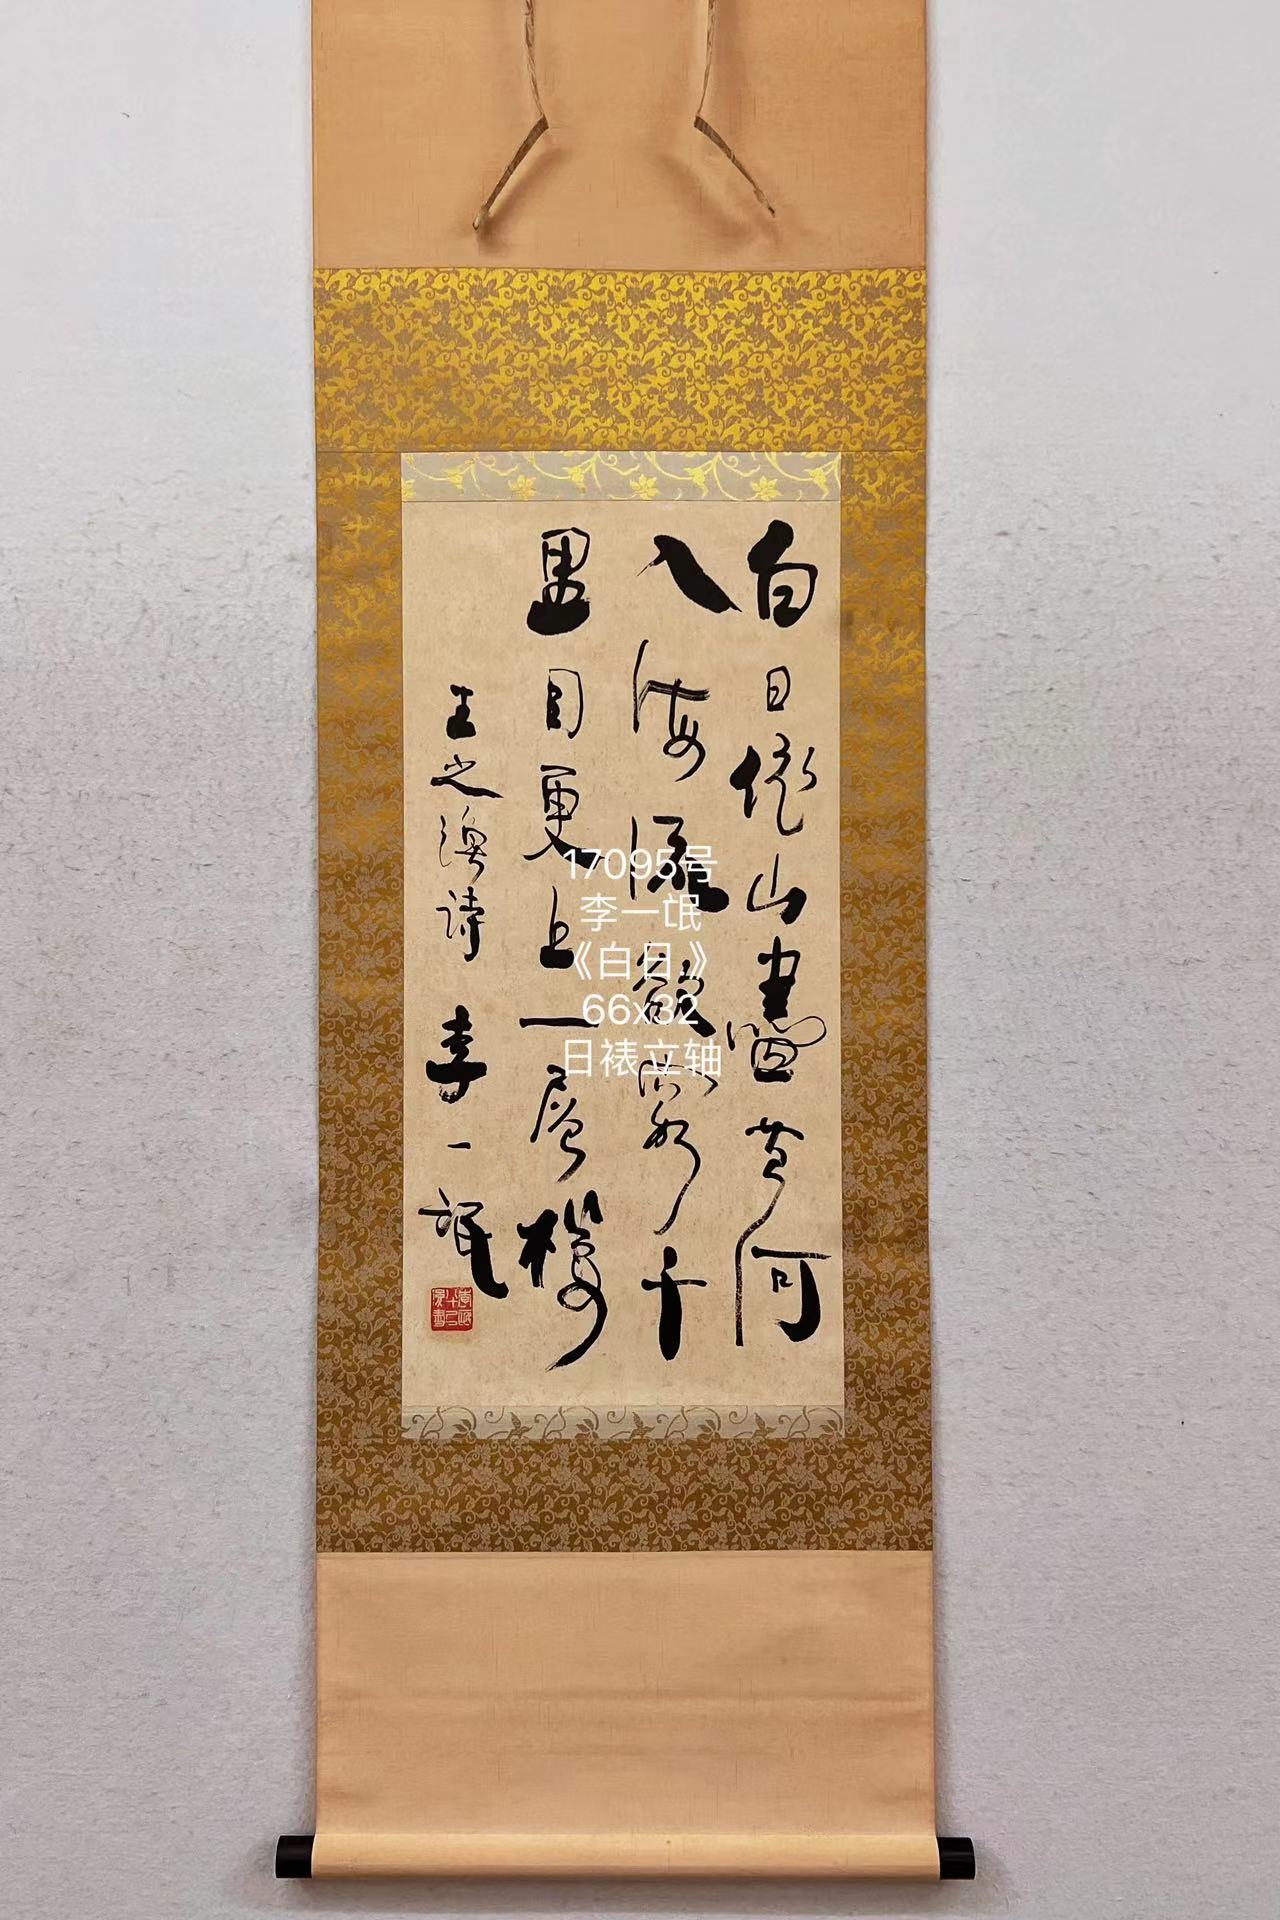 白日依山盡黄河
入海流欲窮千
里目更上一層樓
王之渙诗 李一氓
17095号
李一氓
《白日》
66x32
日裱立轴